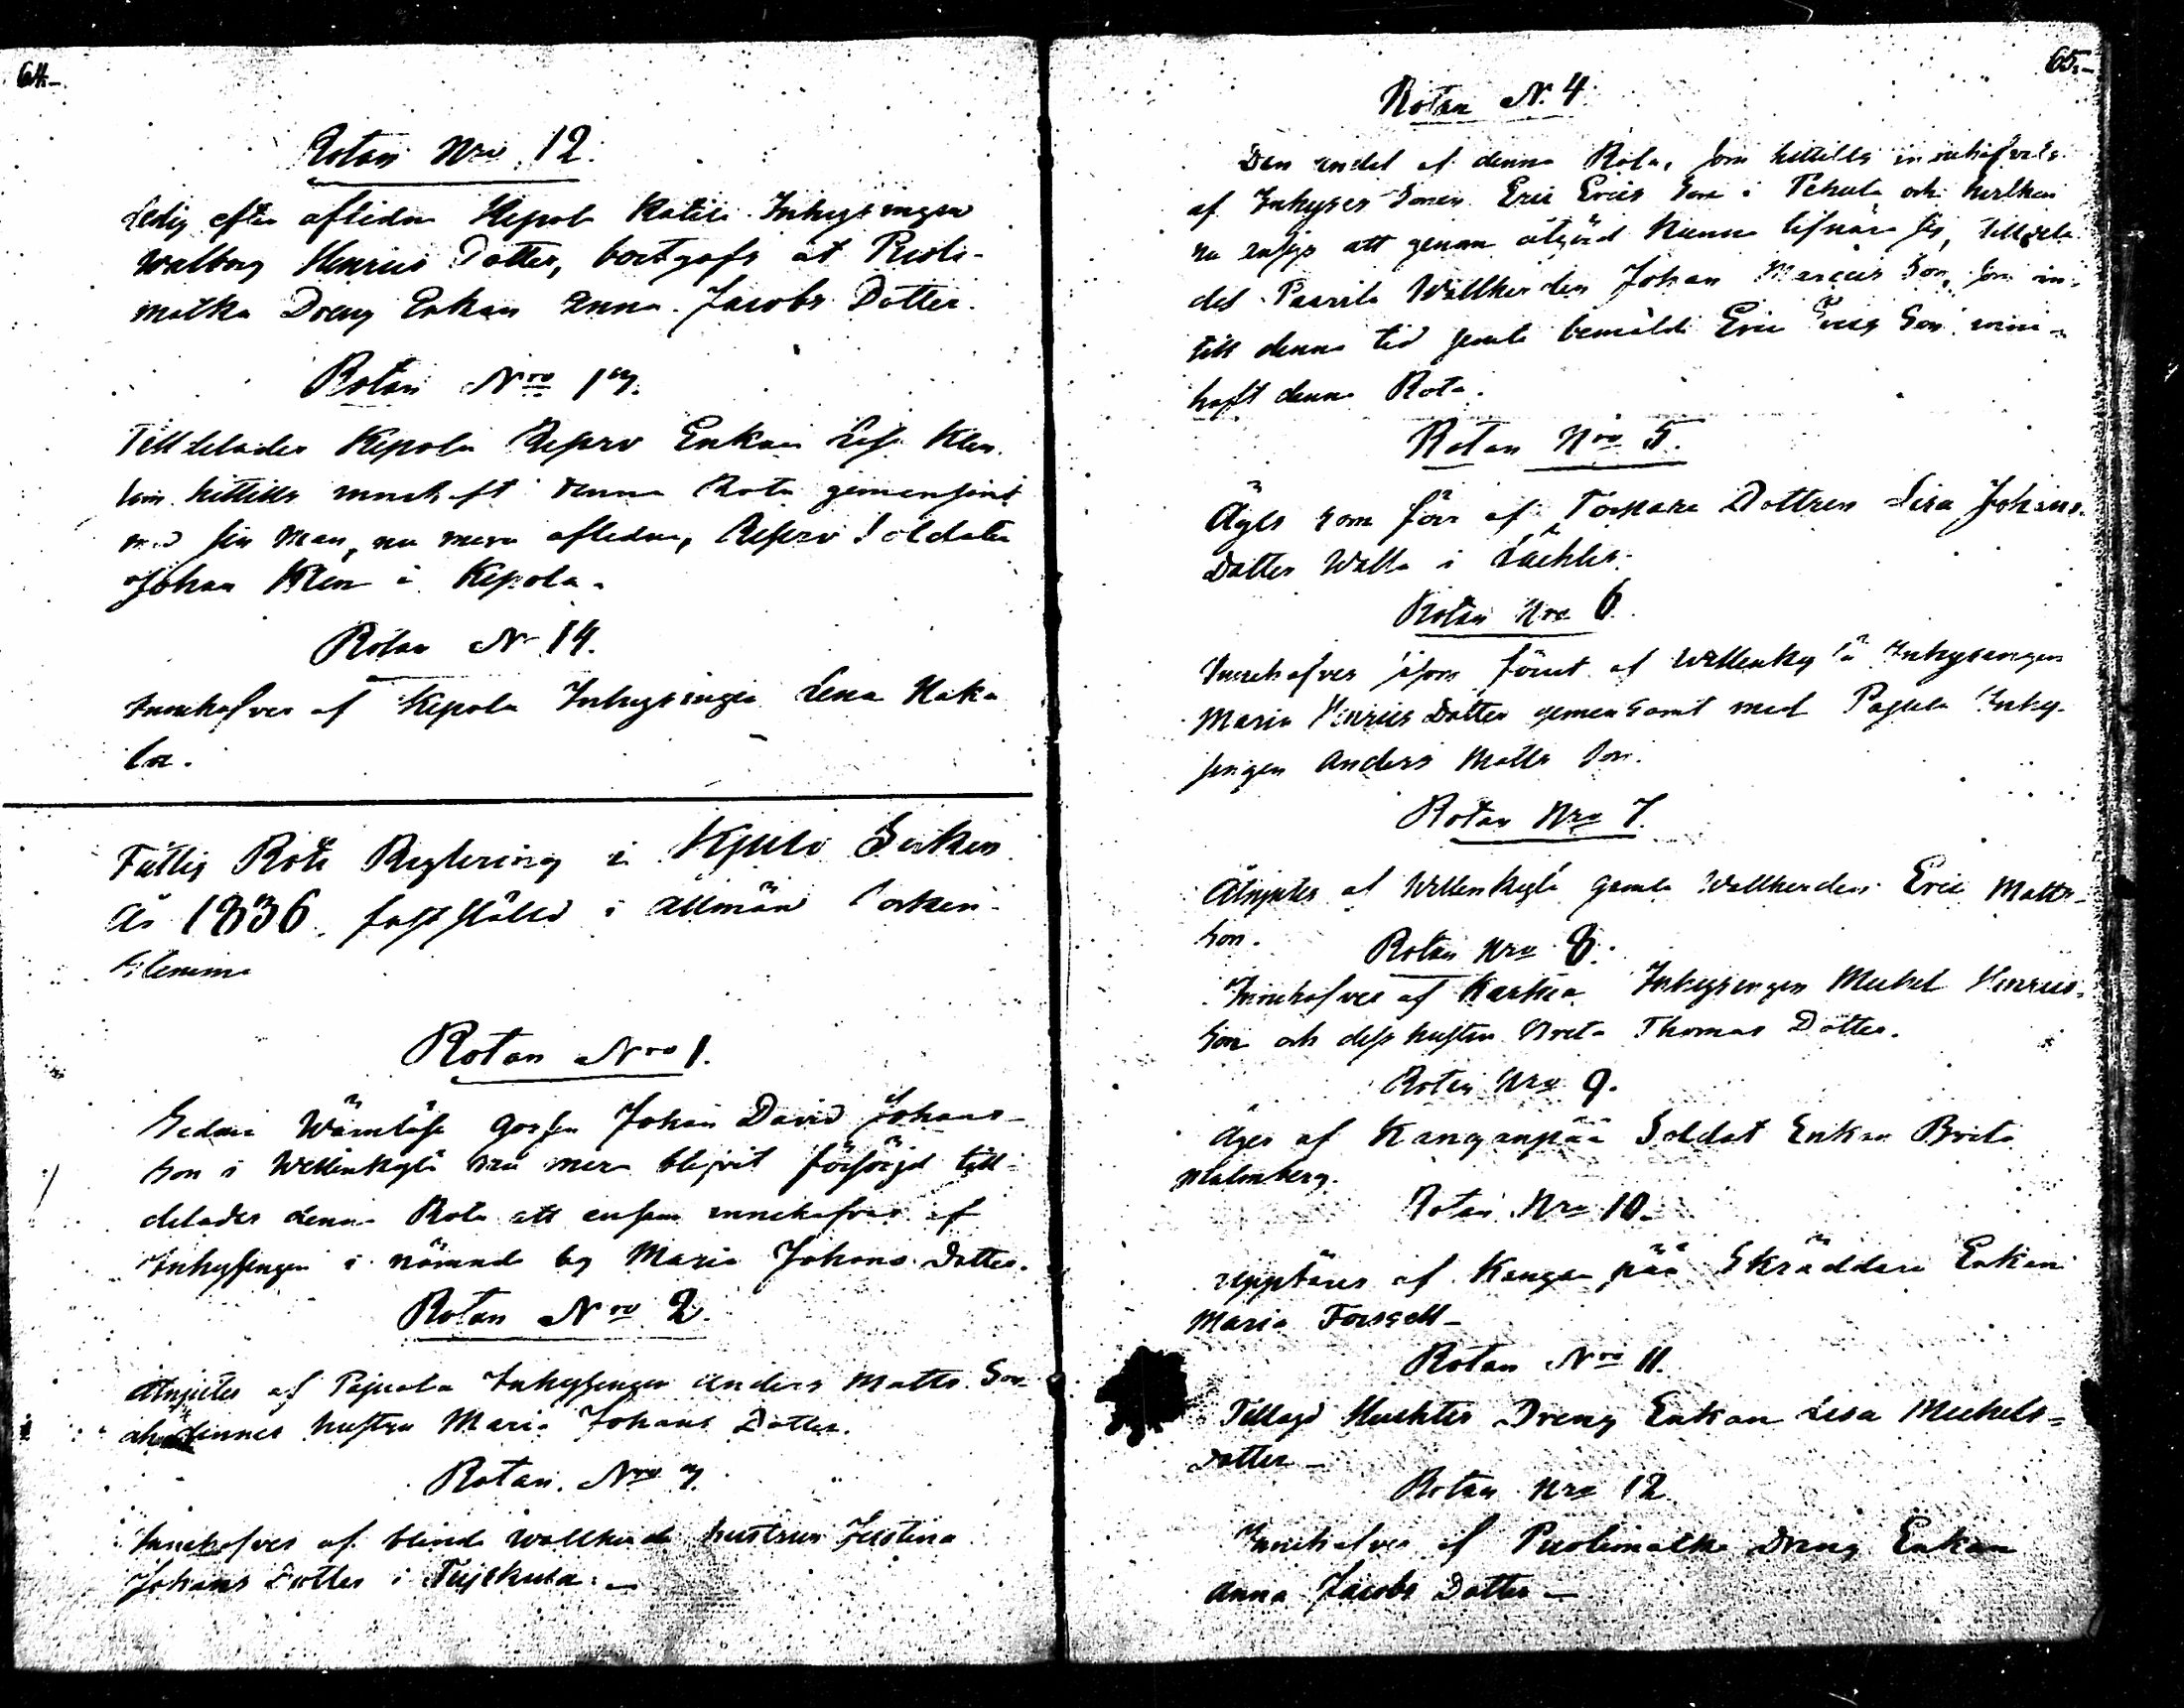 64.-
Rotan Nro 12.
Ledig efter aflidne Kepola Inhysingen
Walborg Henrics Dotter, bortgafs åt Puoli-
matka Dreng Enkan Anna Jacobs Dotter.
Rotan Nro 13.
Tilldelades Kepola Reserv Enkan Klen
som hittills innehaft denna Rota gemensamt
med sin Man, nu mera aflidne, Reserv Soldaten
Johan Klen i Kepola.
Rotan N 14.
Innehafves af Kepola Inhysingen Lena Haka
la.
Fattig Rote Reglering i Kjulo Socken
År 1836. fastställd i allmän Socken-
Stemma
Rotan Nro 1.
Sedan Wärnlöse gossen Johan David Johans-
son i Wellenkylä nu mera blifvit försörgd till-
delades denna Rota att ensam innehafvas af
Inhysingen i nämnde by Maria Johans Dotter.
Rotan Nro 2.
Åtnjutes af Pajuola Inhysingen Anders Matts Son
och dennes hustru Maria Johans Dotter.
Rotan Nro 3.
Innehafves af blinde wallherde hustrun Justina
Johans Dotter i Tujskula. -
65.-
Rotan N. 4.
Den andel af denna Rota, som hittills innehafvits
af Inhyses Sonen Eric Erics Son i och hvilken
nu anses att genom åtgärd kunna lifnära sig, tillde-
des Paavila Wallherden Johan Marcus Son, som in-
till denna tid jemte bemälde Eric Erics Son inne-
haft denna Rota.
Rotan Nro 5.
Äges som förr af Torpare Dottren Lisa Johans
Dotter Walla i
Rotan Nro 6.
Innehafves såsom förut af Wellenkylä Inhysingen
Maria Henrics Dotter gemensamt med Pajula Inhy-
singen Anders Matts Son.
Rotan Nro 7.
Åtnjutes af Wellenkylä gamle Wallherden Eric Matts-
son.
Rotan Nro 8.
Innehafves af Inhysingen Michel Henrics-
son och dess hustru Brita Thomas Dotter.
Rotan Nro 9.
Äges af Kanganpää Soldat Enkan Brita
Malmberg.
Rotan Nro 10.
uppbäres af Kanganpää Skräddare Enkan
Maria Forssell -
Rotan Nro 11.
Tillagd Huchtis Dreng Enkan Lisa Michels-
dotter -
Rotan Nro 12
Innehafves af Puolimatka Dreng Enkan
Anna Jacobs Dotter -